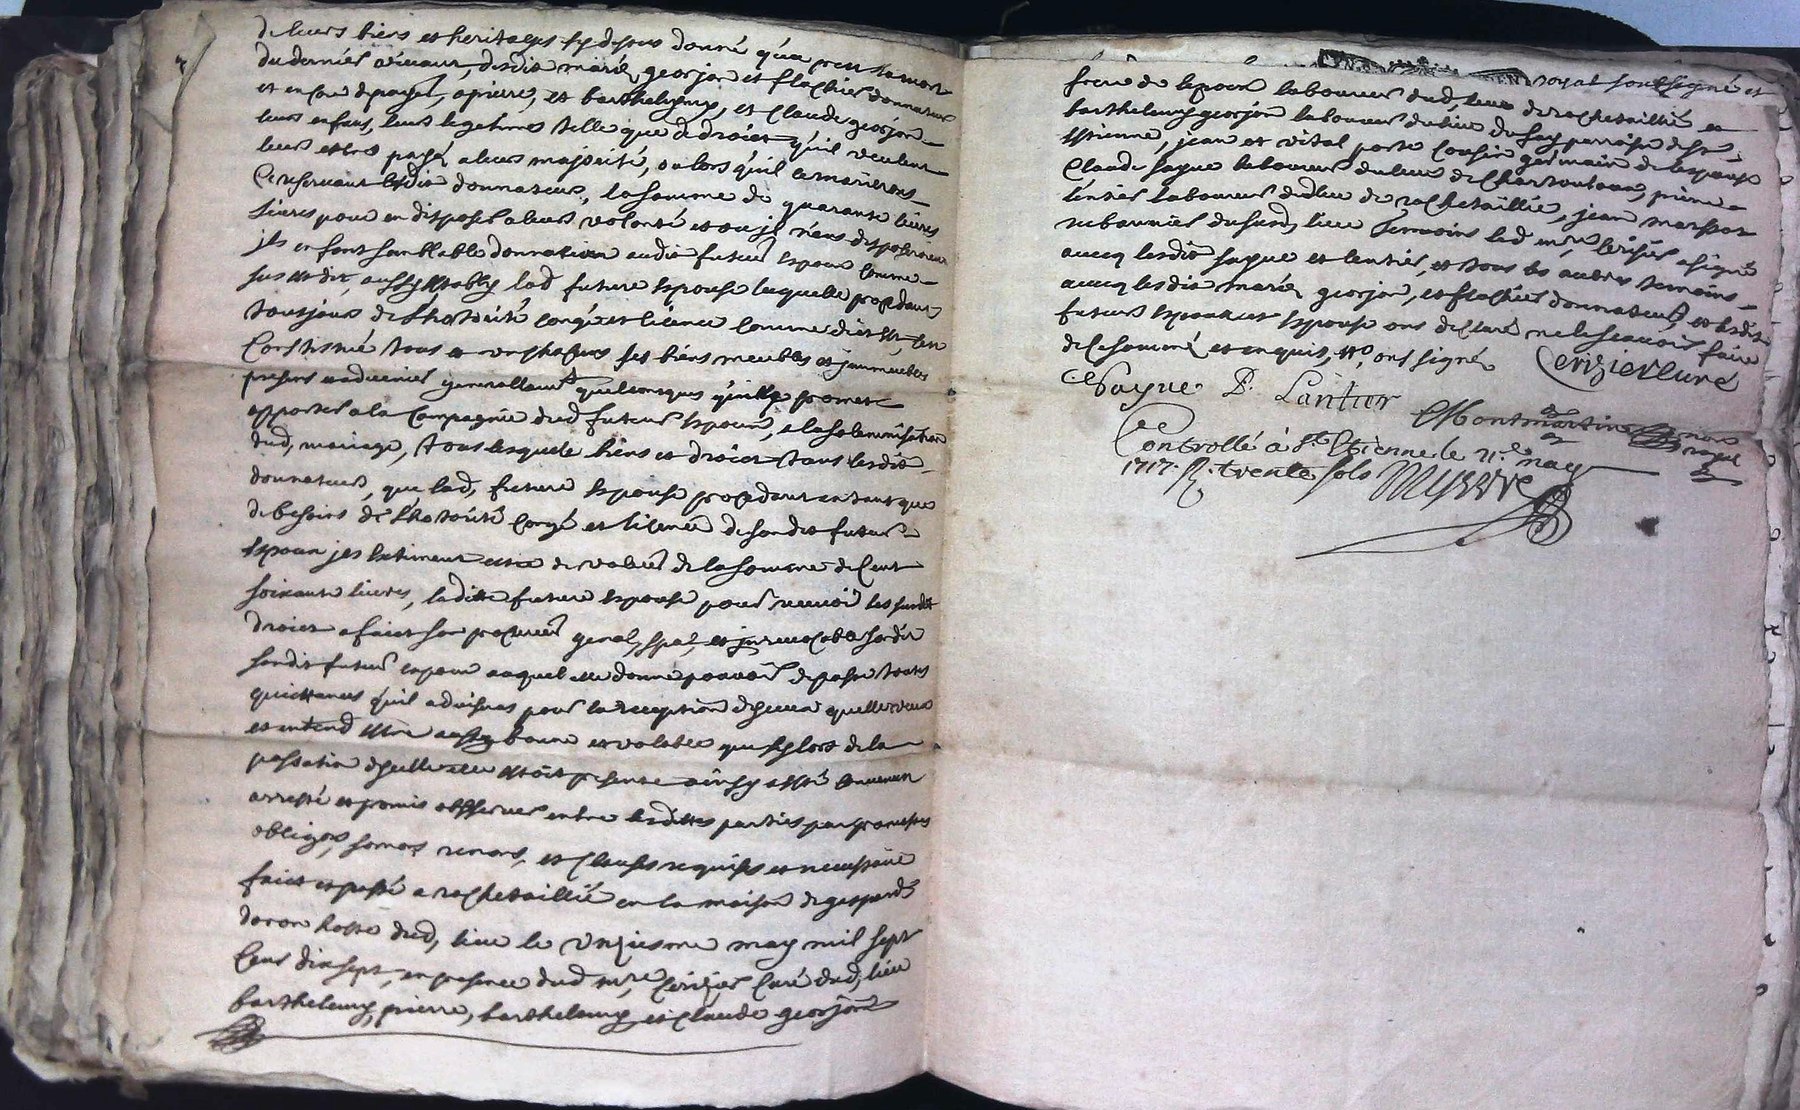 de leurs biens et heritages sy dessus donné qu'en
du dernier vivant, desdits mariés georjon et flachier donnateurs
et encore de payer, a pierre, et barthelemy, et Claude georjon
leurs enfans, leurs legitimes telle que de droict qu'il veulent
leurs estre payé a leurs majorité, ou lors qu'il ce marieront
Ce reservant lesdits donnateurs, la somme de quarante livres
livres pour en disposer a leurs volonté et ou jls n'en disposeroient
jls en font semblable donnation audit futur espoux comme
sus est dit, aussy establi lad future espouse laquelle procedant
tousjours de l'hotorité congé et licence comme dict est, c'est
Constitué tous et uns chascuns ses biens meubles et jmmeubles
presens et advenirs generallement quelconques qu'elle promet
apporter a la Compagnie dud futur espoux, a la solemnisation
dud, mariage, tous lesquels biens et droicts tant lesdits
donnateurs, que lad, future espouse procedant en tant que
de besoins de l'hotorité congé et licence de son dit futur
espoux jls estiment estre de valeur de la somme de Cent
soixante livres, laditte future espouse pour recevoir les susdits
droicts a faict son procureur general, spal, et jrrevocable
sondit futur espoux auquel elle donne pouvoir de passer toutes
quictances qu'il advisera pour la reception d'jceux qu'elle veux
et entend estre aussy bonne et valable que sy lors de la
passation d'jcelle elle estoit presente ainsy a esté convenu
arresté et promis observer entre lesdittes parties par promesses
obligaons, soumons renons, et clauses requises et necessaire
faict et passé a rochetaillié en la maison de gaspard
doron hoste dud, lieu le unziesme may mil sept
Cens dix sept, en presence dud mre, Cerizier Curé dud, lieu
barthelemy, pierre, barthelemy et Claude georjon
royal soubsigné et
frere de lespoux laboureur dud, lieu de rochetaillié et
barthelemy georjon laboureur du lieu du fay parroisse de st
Estienne, jean et vital cousin germain de lespouse
Claude sayue laboureur du lieu de pierre
lentier laboureur dudlieu de rochetaillié, jean
rubannier dususd, lieu temoins led mre Cerisier a signé
avecq lesdits sayue et lentier, et tous les autres temoins
avecq lesdits mariés georjon, et flachier donnateurs et lesdits
futurs espoux et espouse ont declaré ne le scavoir faire
de ce sommé et enquis, ont signé Cerizier curé
C Sayue P. Lantier
Montmartin nore
royal
Controllé à St. Etienne le 21e may
1717. R. trente sols